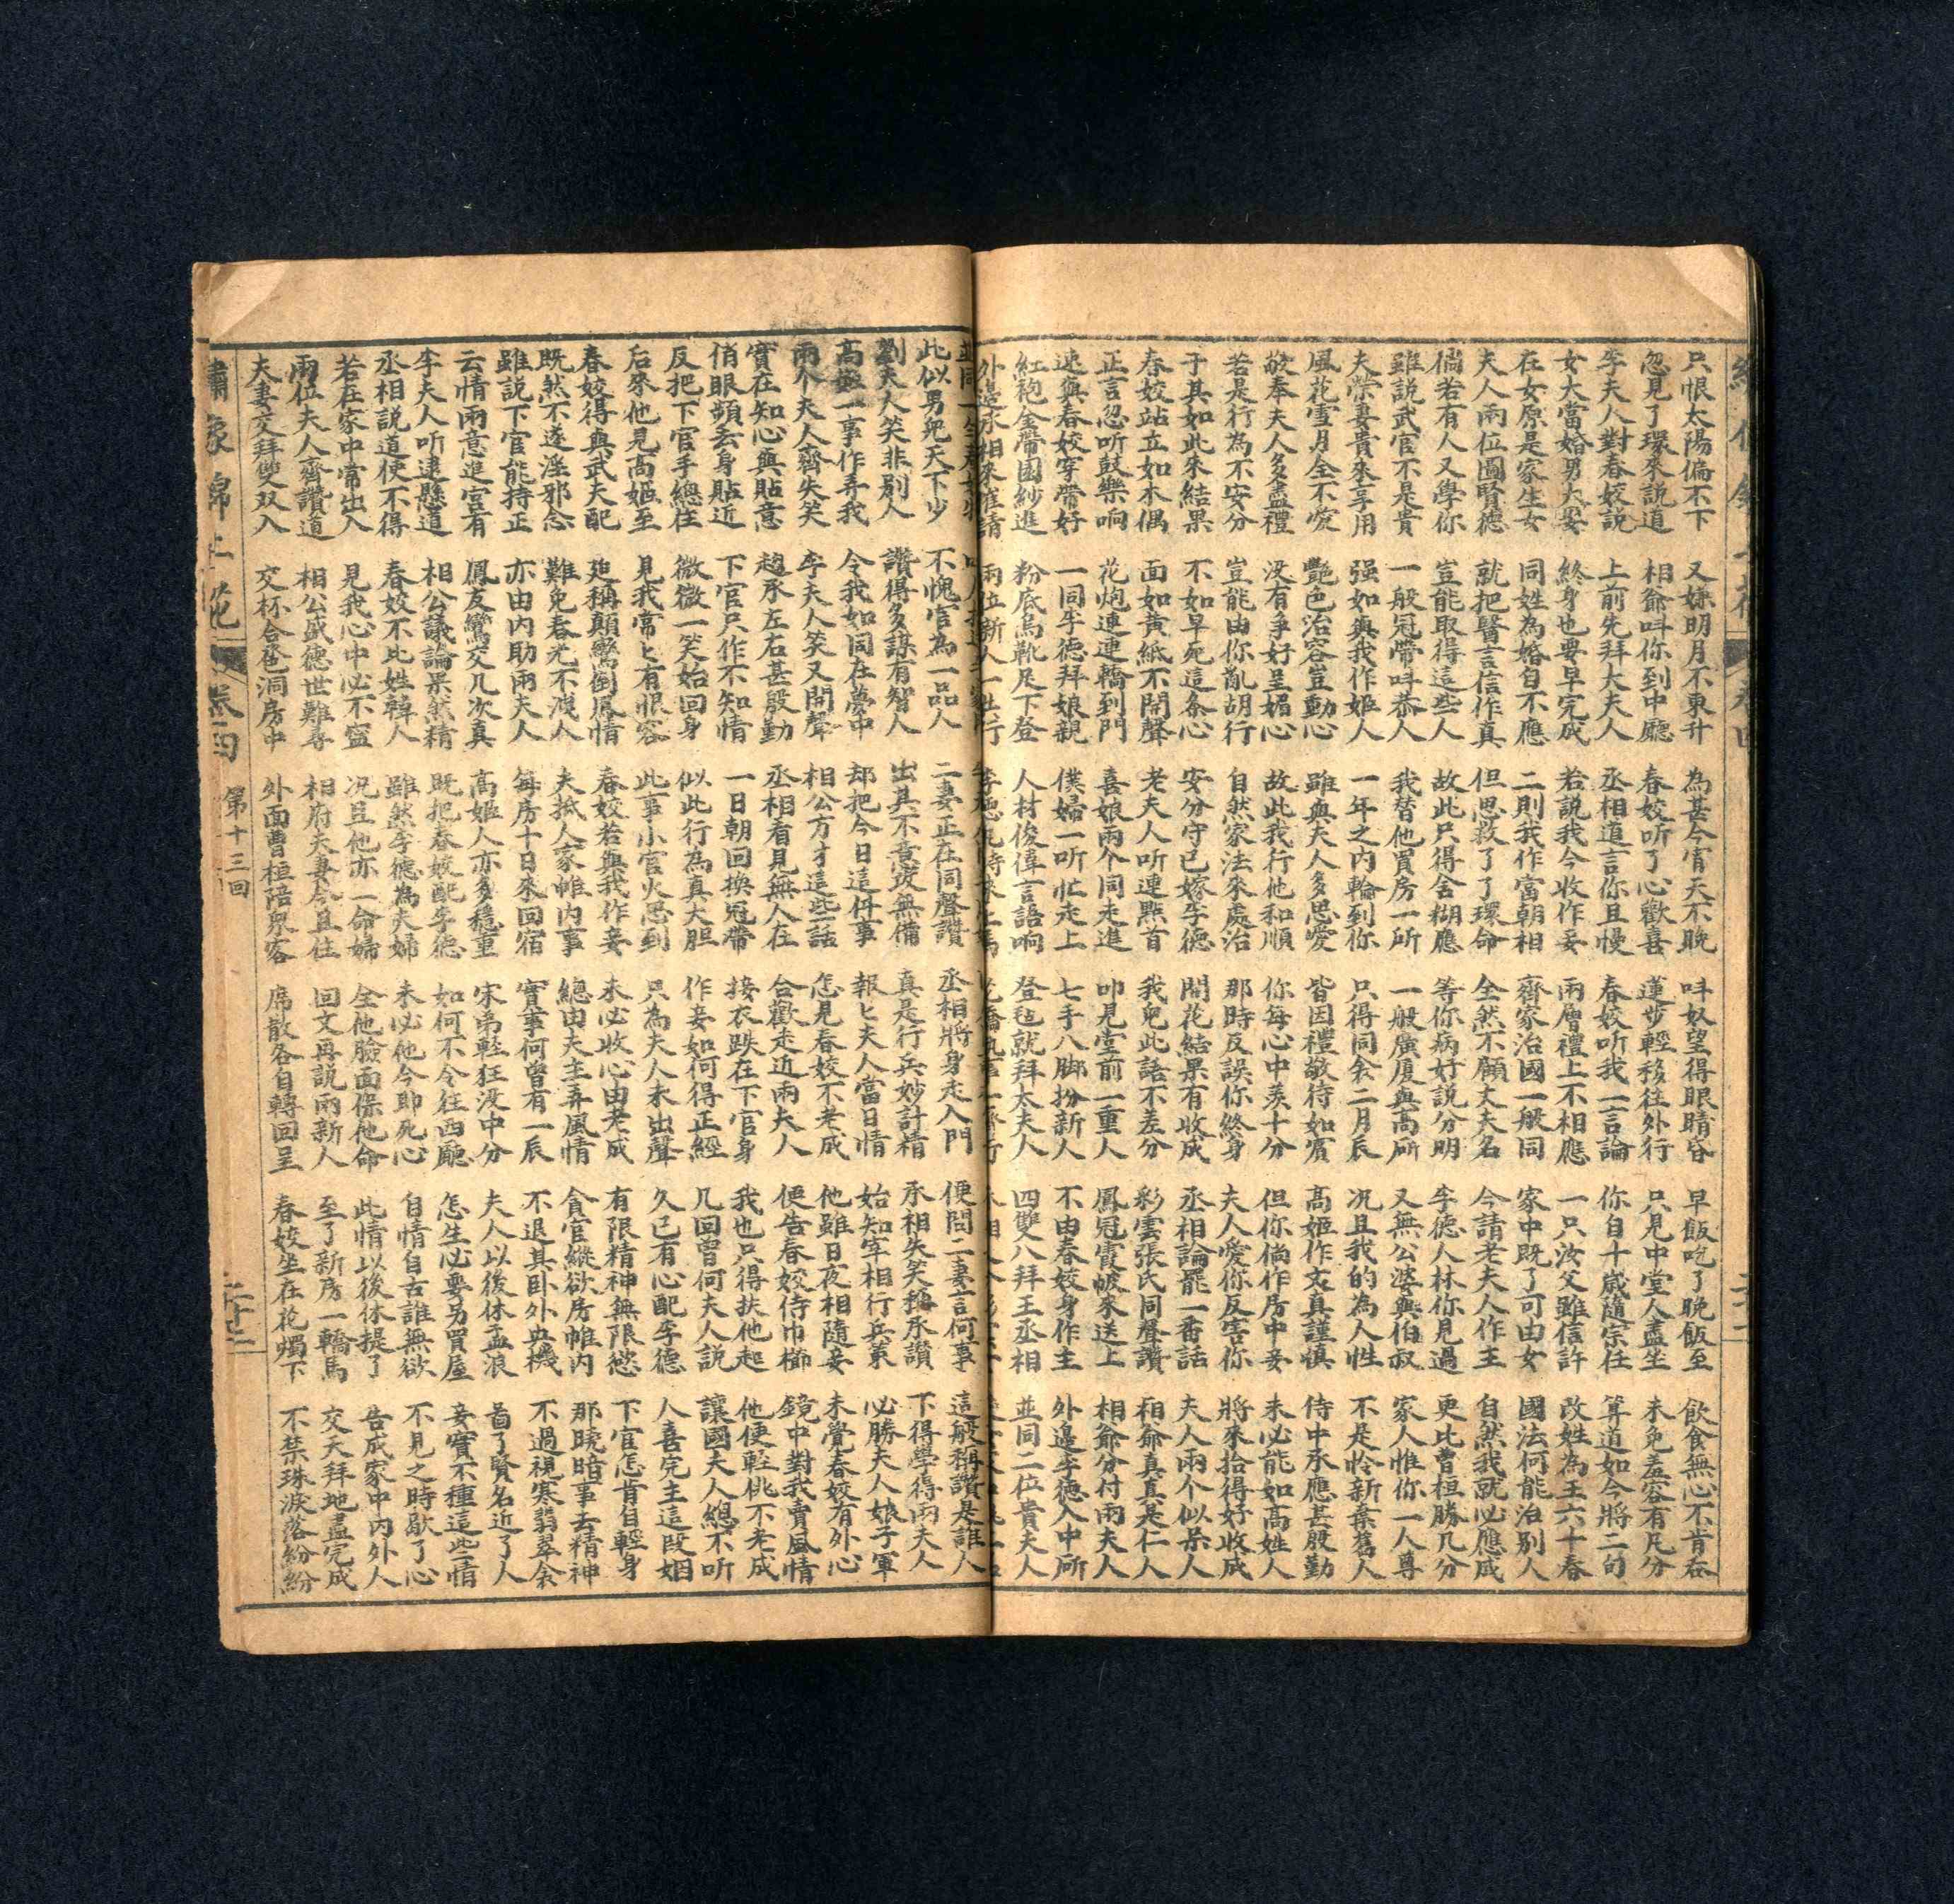 只恨太陽偏不下 又嫌明月不東升 為甚今宵天不晚 呌奴望得眼睛昏 早飯吃了晚飯至 飲食無心不肯吞
忽見了環來説道 相爺呌你到中廳 春姣听了心歡喜 蓮步輕移往外行 只見中堂人盡坐 未免羞容有凡分
李夫人對春姣説 上前先拜大夫人 丞相道言你且慢 春姣听我一言論 你自十歲隨宗任 算道如今將二旬
女大當婚男大娶 終身也要早完成 若説我今收作妾 兩層禮上不相應 一只汝父雖信許 改姓為王六十春
在女原是家生女 同姓為婚自不應 二則我作當朝相 齊家治國一般同 家中既了可由女 國法何能治别人
夫人兩位圖賢德 就把醫言信作真 但思救了了環命 全然不顧丈夫名 今請老夫人作主 自然我就必應成
倘若有人又學你 豈能取得這些人 故此只得含糊應 等你病好説分明 李德人林你見過 更比曹桓勝几分
雖説武官不是貴 一般冠帶呌恭人 我替他買房一所 一般廣厦與高所 又無公婆與伯叔 家人惟你一人尊
夫榮妻貴來享用 强如與我作姬人 一年之内輪到你 只得同衾二月辰 况且我的為人性 不是怜新棄舊人
風花雪月全不愛 艷色冶容豈動心 雖與夫人多思愛 皆因禮敬待如賓 高姬作文真謹慎 侍中承應甚殷勤
敬奉夫人多盡禮 没有爭好呈媚心 故此我行他和順 你每心中羨十分 但你倘作房中妾 未必能如高姓人
若是行為不安分 豈能由你亂胡行 自然家法來處治 那時反誤你終身 夫人愛你反害你 將來拾得好收成
于其如此來結果 不如早死這条心 安分守已嫁李德 開花結果有收成 丞相論罷一番話 夫人兩个似呆人
春姣站立如木偶 面如黃紙不開聲 老夫人听連點首 我兒此話不差分 彩雲張氏同聲讚 相爺真真是仁人
正言忽听鼓樂响 花炮連連轎到門 喜娘兩个同走進 叩見堂前一重人 鳳冠霞帔來送上 相爺分付兩夫人
速與春姣穿帶好 一同李德拜娘親 僕婦一听忙走上 七手八脚扮新人 不由春姣身作主 外邊李德人中所
紅袍金帶國紗進 粉底烏靴足下登 人材俊偉言語响 登毡就拜太夫人 四雙八拜王丞相 並同二位貴夫人
外邊丞相來催請 兩位新人
此似男兒天下少 不愧官為一品人 二妻正在同聲讚 丞相將身走入門 便問二妻言何事 這般稱讚是誰人
劉夫人笑非别人 讚得多謀有智人 出其不意没無備 真是行兵妙計精 丞相失笑稱承讚 下得學得兩夫人
高一事作弄我 令我如同在夢中 却把今日這件事 報匕夫人當日情 始知宰相行兵策 必勝夫人娘子軍
兩个夫人齊失笑 李夫人笑又開聲 相公方才這些話 怎見春姣不老成 他雖日夜相隨妾 未覺春姣有外心
實在知心與貼意 趨承左右甚殷勤 丞相看見無人在 合歡走近兩夫人 便告春姣侍巾櫛 鏡中對我賣風情
俏眼頻丟身貼近 下官只作不知情 一日朝回換冠帶 接衣跌在下官身 我也只得扶他起 他便輕佻不老成
反把下官手總住 微微一笑始回身 似此行為真大胆 作妾如何得正經 几回曾何夫人説 讓國夫人總不听
后來他見高姬至 見我常匕有恨容 此事小官火思到 只為夫人未出聲 久已有心配李德 人喜完主這段姻
春姣得與武夫配 廹稱顛鸞倒鳳情 春姣若與我作妾 未必收心由老成 有限精神無限慾 下官怎肯自輕身
既然不遂淫邪念 難免春光不洩人 夫抵人家帷内事 總由夫主弄風情 貪官縱欲房帷内 那曉暗事去精神
雖説下官能持正 亦由内助兩夫人 每房十日來回宿 實事何曾有一辰 不退其卧外央機 不過視寒翡翠衾
云情雨意進宮有 鳳友鸞交几次真 高姬人亦多穩重 宋弟輕狂没中分 夫人以後休孟浪 昔了賢名近了人
李夫人听連懸道 相公議論果然精 既把春姣配李德 如何不令往西廳 怎生必要另買屋 妾實不種這些情
丞相説道使不得 春姣不比姓韓人 雖然李德為夫婦 未必他今即死心 自情自古誰無欲 不見之時歇了心
若在家中常出入 見我心中必不寧 况且他亦一命婦 全他臉面保他命 此情以後休提了 告戒家中内外人
兩位夫人齊讚道 相公盛德世難尋 相府夫妻今且住 回文再説兩新人 至了新房一轎馬 交天拜地盡完成
夫妻交拜雙双入 交杯合卺洞房中 外面曹桓陪衆客 席散各自轉回呈 春姣坐在花燭下 不禁珠淚落紛紛
繡象錦上花 卷四 第十三回 二十二